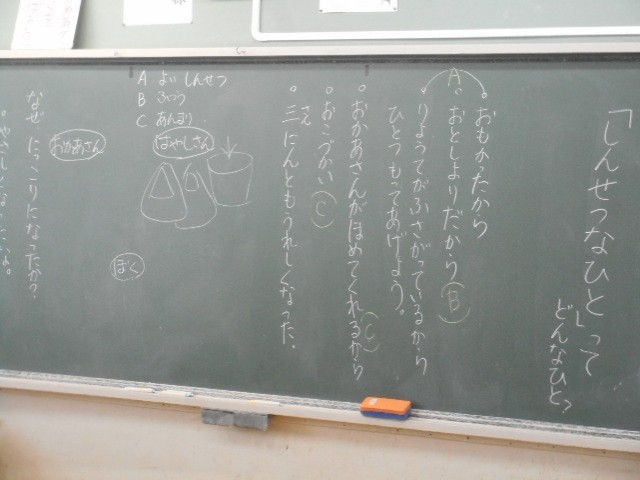 「しんせつなひと」って
どんなひと?
A
。おもかったから
おとしよりだから B
。りょうてがふさがっているから
ひとつもってあげよう。
。おかあさんがほめてくれるから C
。おこづかい C
。三にんともうれしくなった。
さん
A よい しんせつ
B ふつう
C あんまり
はやしさん
ぼく
おかあさん
なぜ、にっこりになったか?